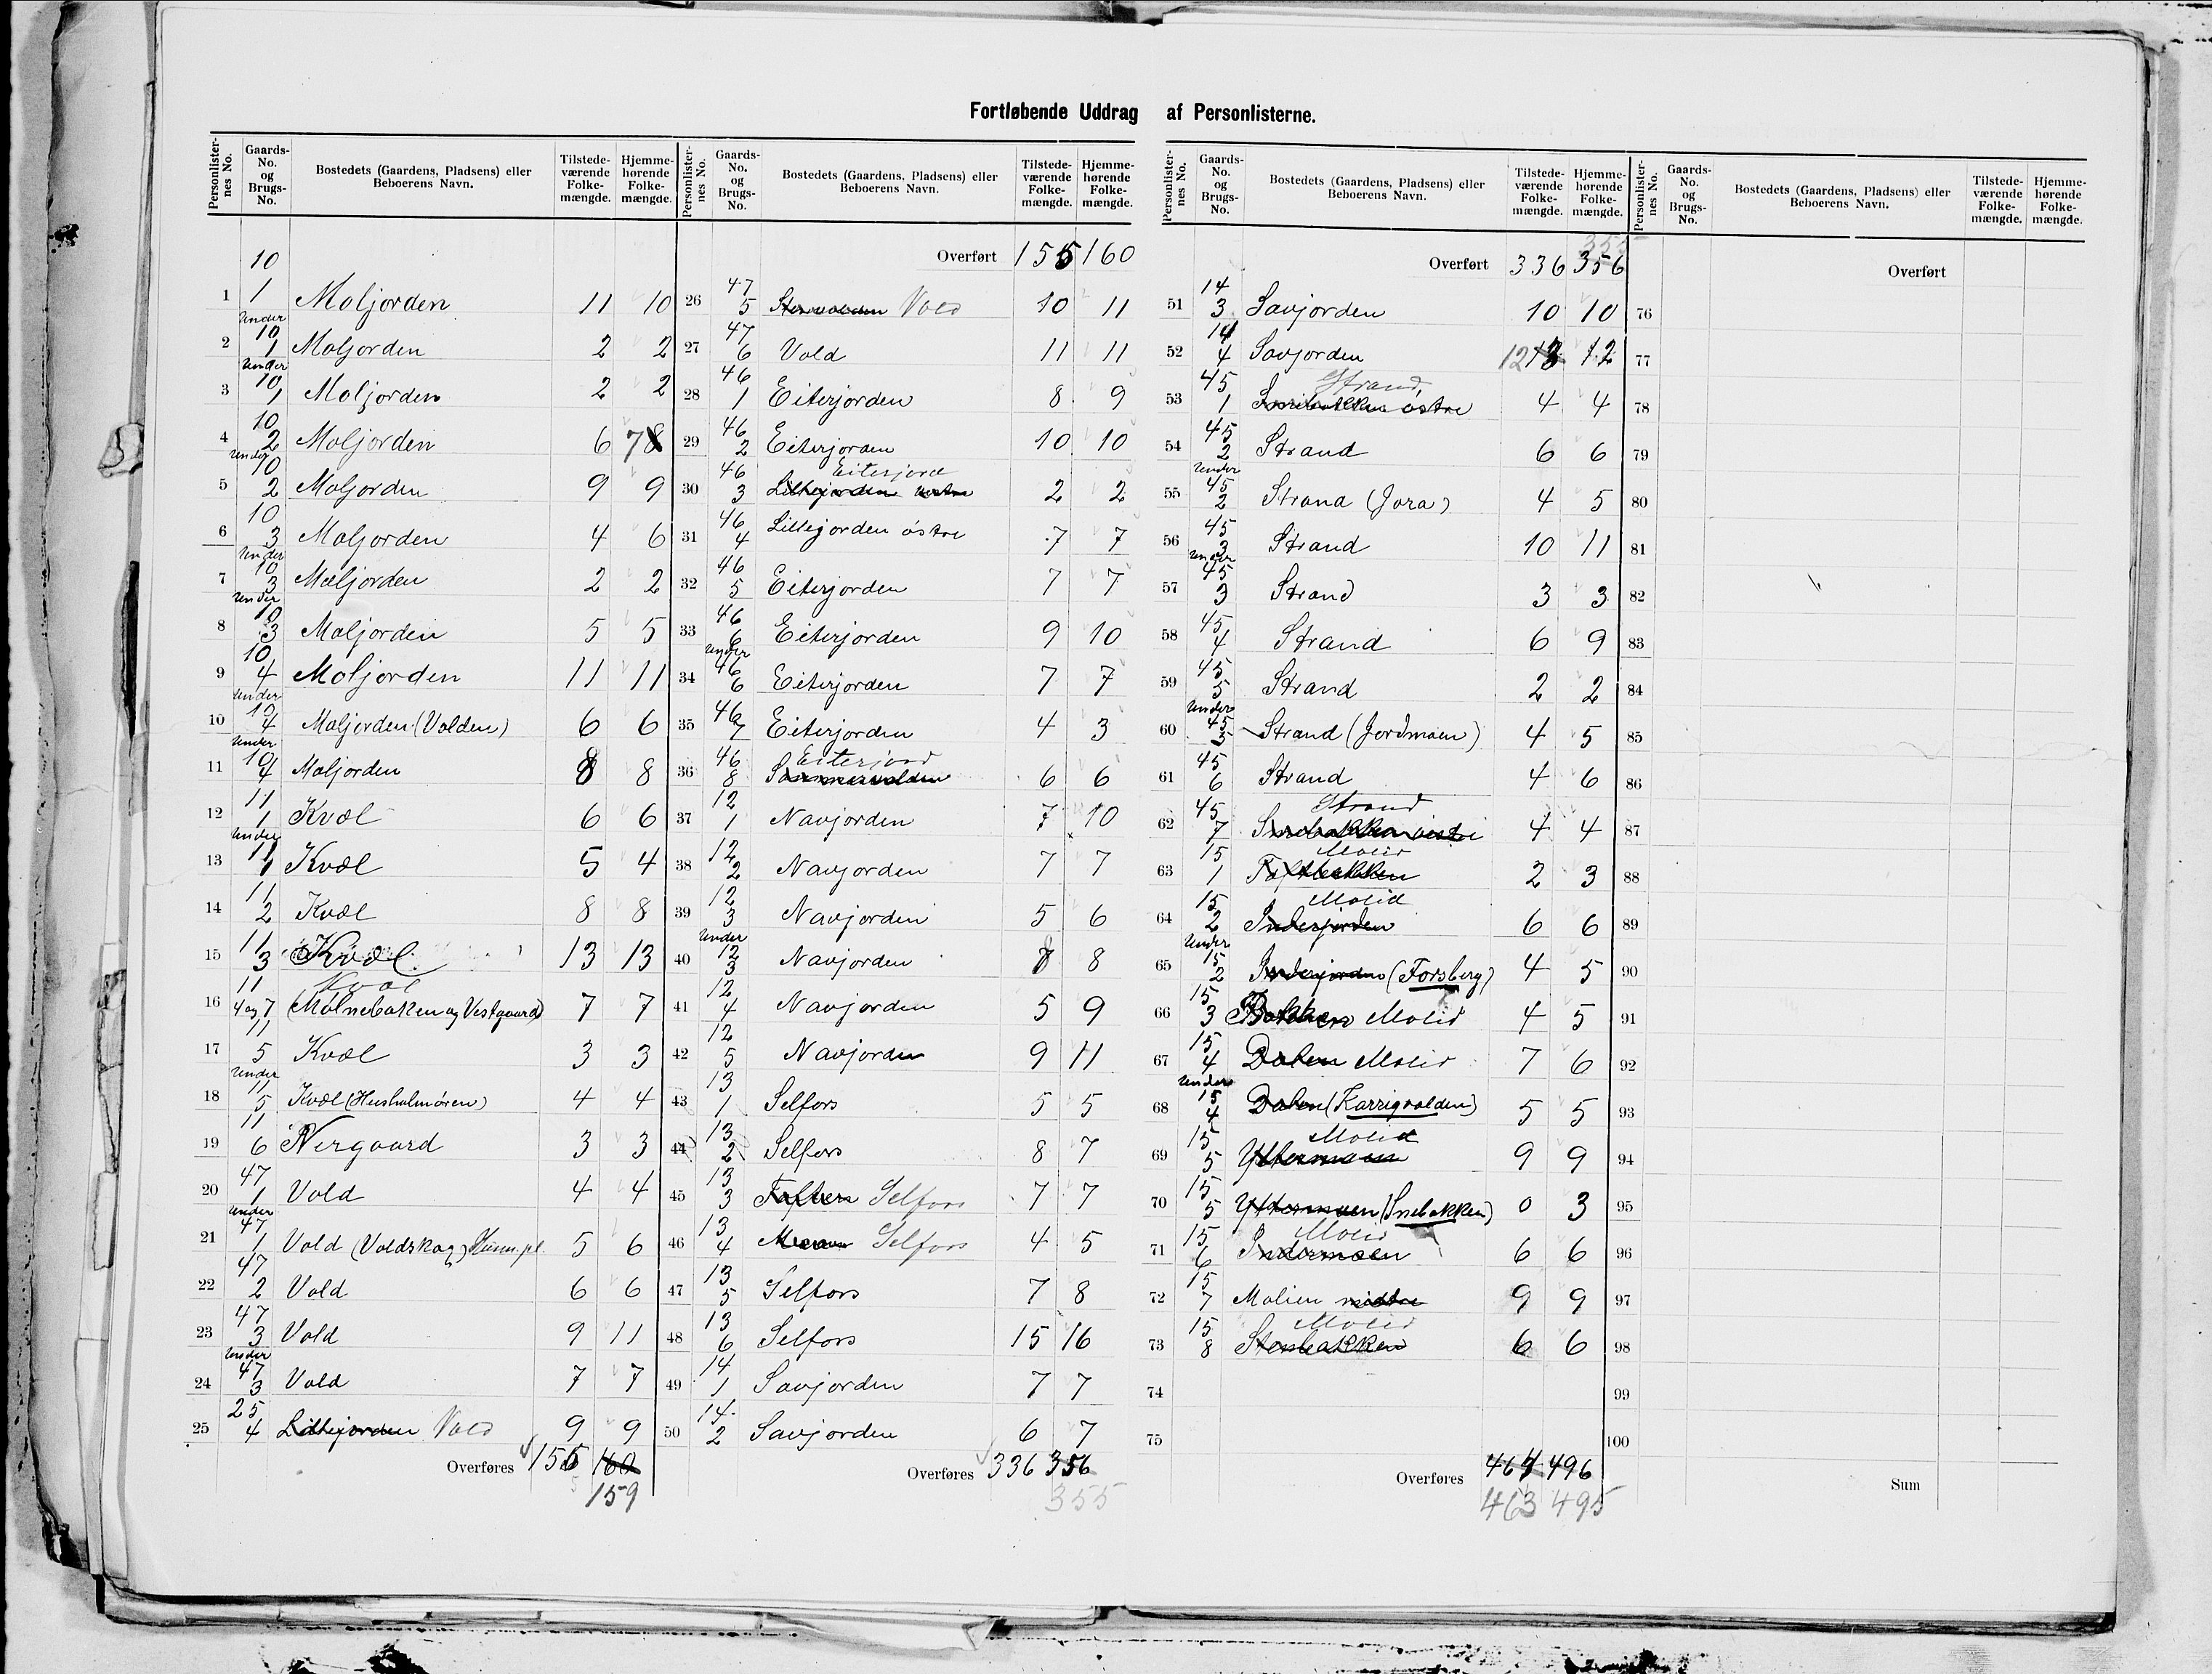 Fortløbende Uddrag af Personlisterne.
Personlisternes No. Gaards-No. og Brugs-No. Bostedets (Gaardens, Pladsens) eller Beboerens Navn. Tilstedeværende Folkemængde. Hjemmehørende Folkemængde.
10
1 1 Moljorden 11 10
Under
2 10 1 Moljorden 2 2
Under
3 10 1 Moljorden 2 2
4 10 2 Moljorden 6 7 8
Under
5 10 2 Moljorden 9 9
6 10 3 Moljorden 4 6
Under
7 10 3 Moljorden 2 2
Under
8 10 3 Moljorden 5 5
9 10 4 Moljorden 11 11
Under
10 10 4 Moljorden (Volden) 6 6
Under
11 10 4 Moljorden 8 8
12 11 1 Kvæl 6 6
Under
13 11 1 Kvæl 5 4
14 11 2 Kvæl 8 8
15 11 3 Kvæl 13 13
Kvæl
16 11 4 og 7 (Mølnebakken og Vestgaard) 7 7
17 11 5 Kvæl 3 3
Under
18 11 5 Kvæl (Husholmøren) 4 4
19 11 6 Nergaard 3 3
20 47 1 Vold 4 4
Under
21 47 1 Vold (Voldskog) Huum.pl 5 6
22 47 2 Vold 6 6
23 47 3 Vold 9 11
Under
24 47 3 Vold 7 7
25 25 4 Lillejorden Vold 9 9
Overføres 155 160
159
Personlisternes No. Gaards-No. og Brugs-No. Bostedets (Gaardens, Pladsens) eller Beboerens Navn. Tilstedeværende Folkemængde. Hjemmehørende Folkemængde.
Overført 155 160
26 47 5 Vold 10 11
27 47 6 Vold 11 11
28 46 1 Eiterjorden 8 9
29 46 2 Eiterjorden 10 10
Eiterjord
30 46 3 Lillejorden vestre 2 2
31 46 4 Lillejorden østre 7 7
32 46 5 Eiterjorden 7 7
33 46 6 Eiterjorden 9 10
Under
34 46 6 Eiterjorden 7 7
35 46 7 Eiterjorden 4 3
Eiterjord
36 46 8 Sommervolden 6 6
37 12 1 Navjorden 7 10
38 12 2 Navjorden 7 7
39 12 3 Navjorden 5 6
Under
40 12 3 Navjorden 8 8
41 12 4 Navjorden 5 9
42 12 5 Navjorden 9 11
43 13 1 Selfors 5 5
44 13 2 Selfors 8 7
45 13 3 Toften Selfors 7 7
46 13 4 Moen Selfors 4 5
47 13 5 Selfors 7 8
48 13 6 Selfors 15 16
49 14 1 Savjorden 7 7
50 14 2 Savjorden 6 7
Overføres 336 356
355
Personlisternes No. Gaards-No. og Brugs-No. Bostedets (Gaardens, Pladsens) eller Beboerens Navn. Tilstedeværende Folkemængde. Hjemmehørende Folkemængde.
355
Overført 336 356
51 14 3 Savjorden 10 10
52 14 4 Savjorden 12 13 12
Strand
53 45 1 Snebakken østre 4 4
54 45 2 Strand 6 6
Under
55 45 2 Strand (Jora) 4 5
56 45 3 Strand 10 11
Under
57 45 3 Strand 3 3
58 45 4 Strand 6 9
59 45 5 Strand 2 2
Under
60 45 5 Strand (Jordmoen) 4 5
61 45 6 Strand 4 6
Strand
62 45 7 Snebakken vestre 4 4
Molid
63 15 1 Toftbakken 2 3
Molid
64 15 2 Inderjorden 6 6
Under
65 15 2 Inderjorden (Forsberg) 4 5
66 15 3 Bakken Molid 4 5
67 15 4 Dalen Molid 7 6
Under
68 15 4 Dalen (Karrigvolden) 5 5
Molid
69 15 5 Yttermoen 9 9
70 15 5 Yttermoen (Snebakken) 0 3
Molid
71 15 6 Indermoen 6 6
72 15 7 Molien midtre 9 9
Molid
73 15 8 Stenbakken 6 6
74
75
Overføres 464 496
463 495
Personlisternes No. Gaards-No. og Brugs-No. Bostedets (Gaardens, Pladsens) eller Beboerens Navn. Tilstedeværende Folkemængde. Hjemmehørende Folkemængde.
Overført
76
77
78
79
80
81
82
83
84
85
86
87
88
89
90
91
92
93
94
95
96
97
98
99
100
Sum